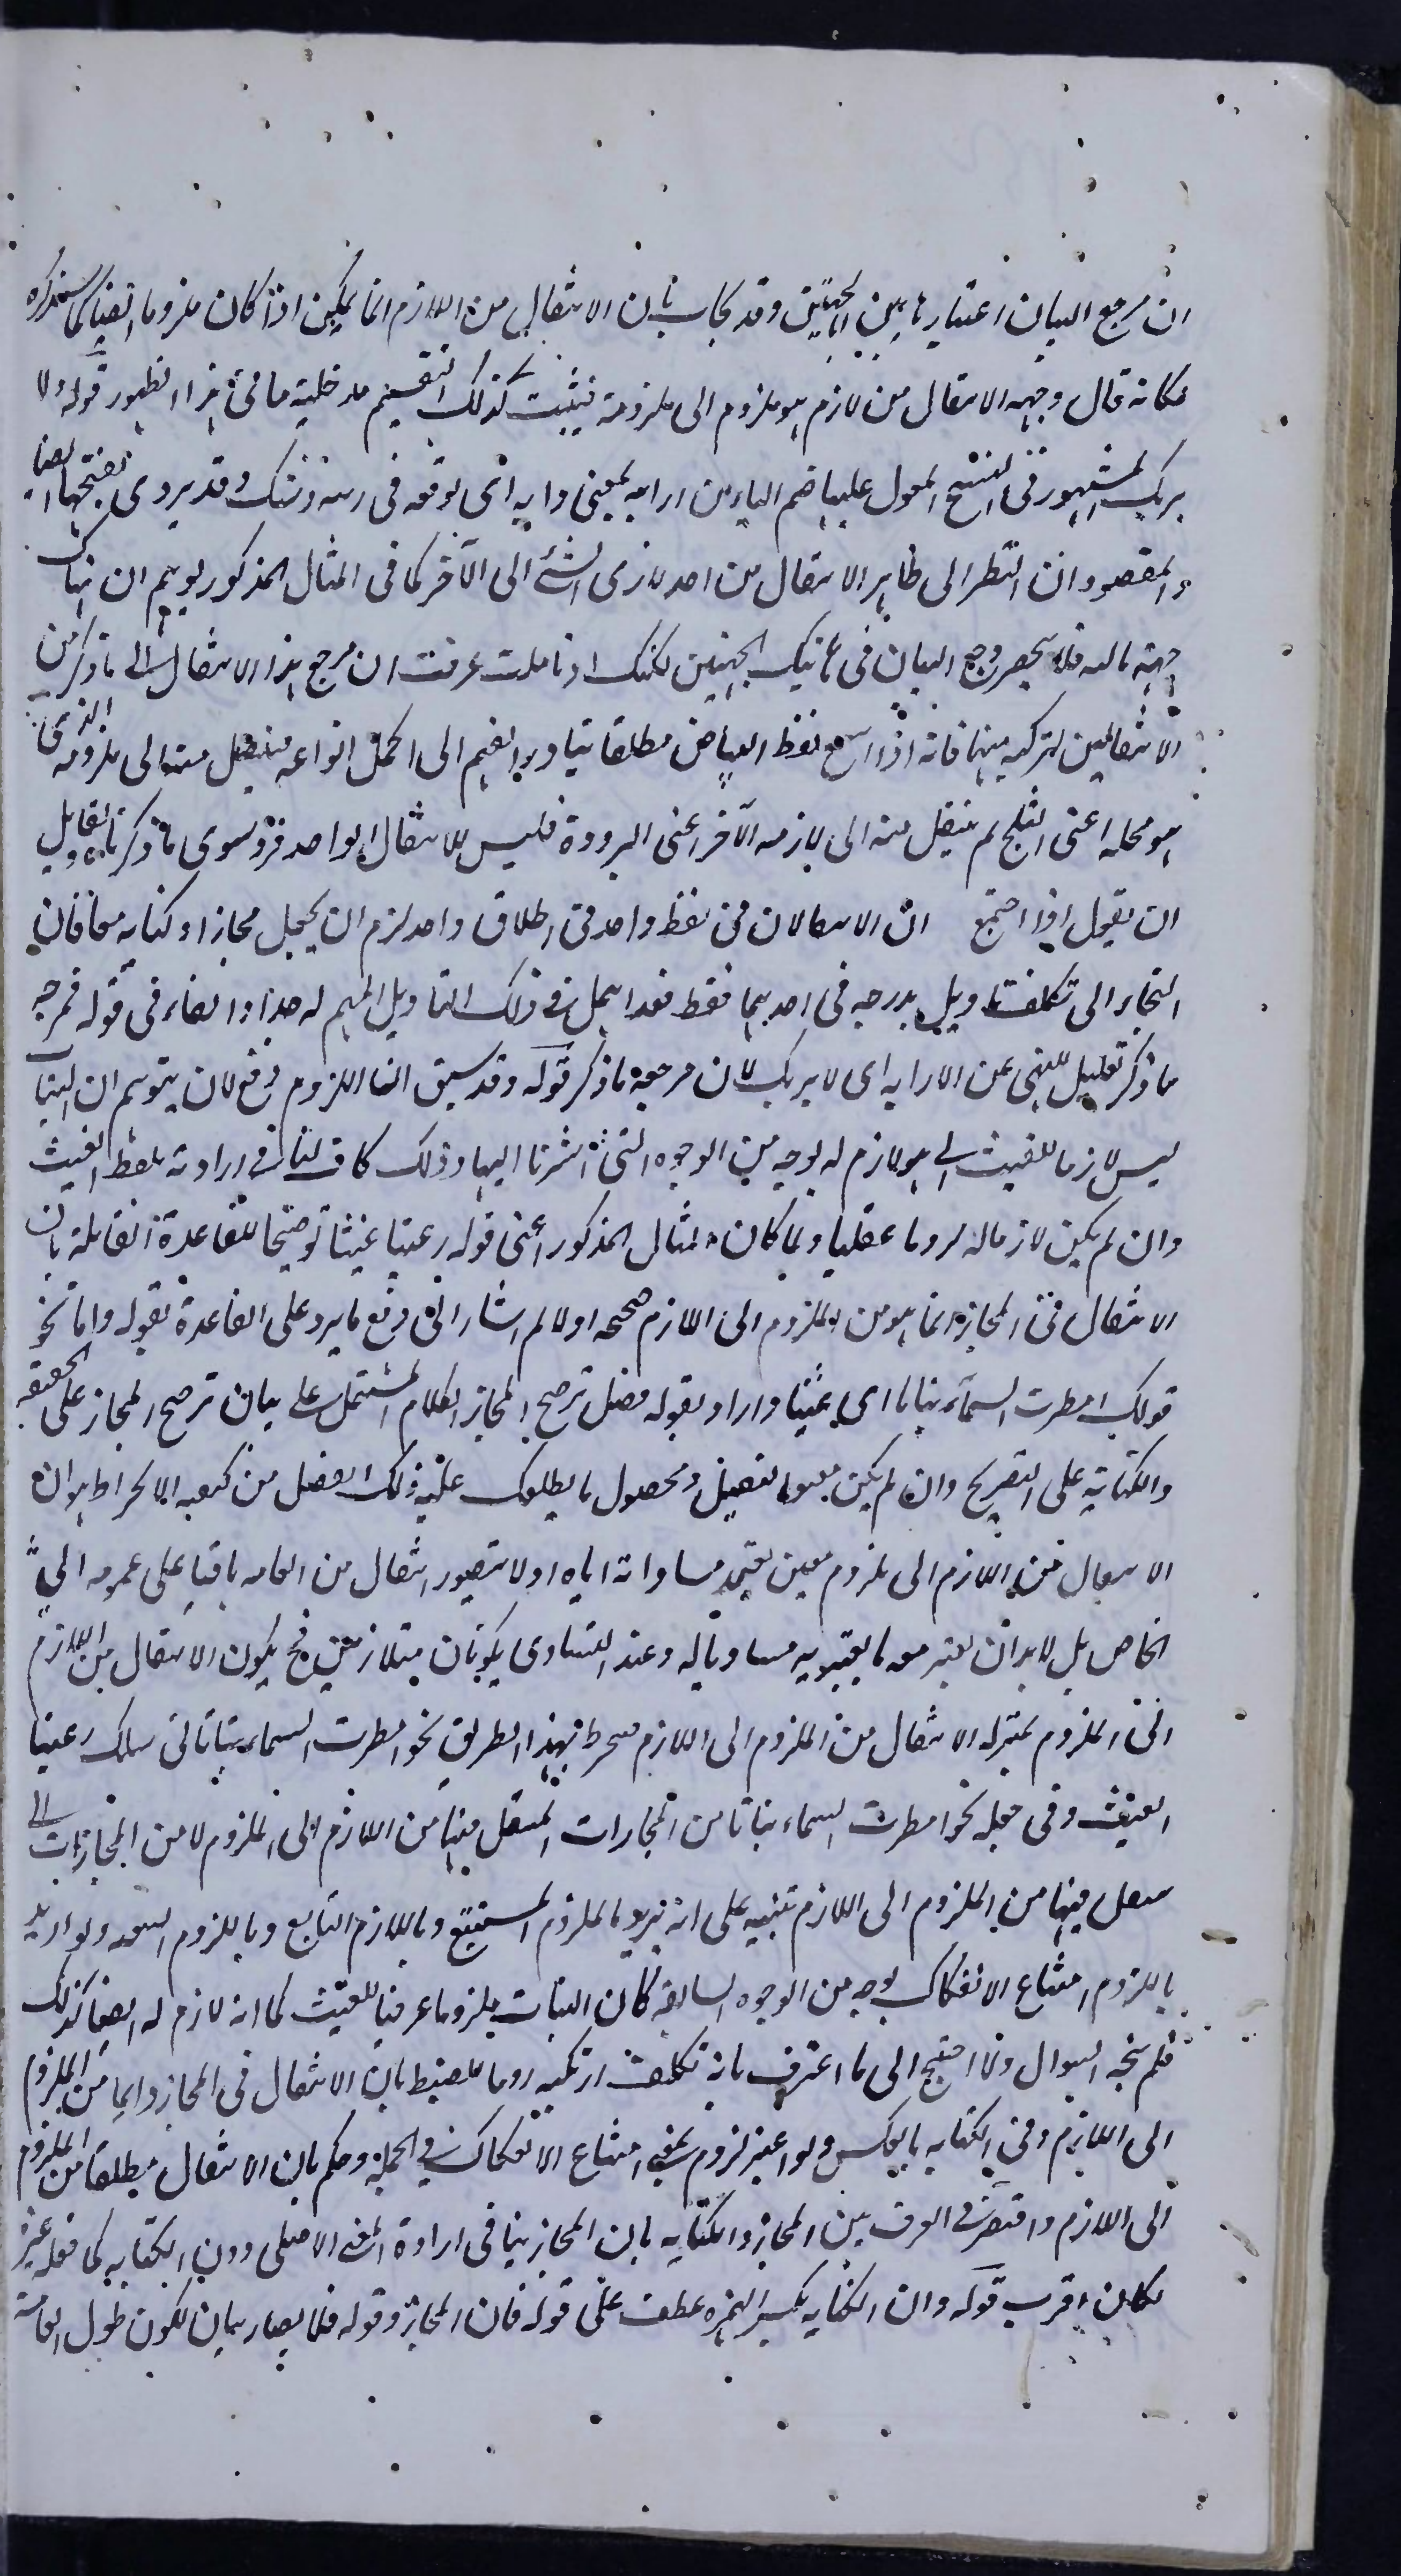 ان مرجع البيان اعتبار هاتين الجهتين وقد يجاب بان الانتقال من اللازم انما يمكن اذا كان ملزوما ايضا كما سيذكره
فكانه قال وجهه الانتقال من لازم هو ملزوم الى ملزومه فيثبت كذلك التقسيم مدخلية ما في هذا الظهور قوله ولا
يريك المشهور في النسخ المعول عليها ضم الياء من ارابه بمعنى رابه اى اوقعه في ريبة وشك وقد يروى بفتحها ايضا
والمقصود ان النظر الى ظاهر الانتقال من احد لازمى الشئ الى الآخر كما في المثال المذكور يوهم ان هناك
جهة ثالثة فلا ينحصر وجه البيان في تانيك الجهتين لكنك اذا تاملت عرفت ان مرجع هذا الانتقال الى ما ذكر من
الانتقالين لتركبه منهما فانه اذا سمع لفظ البياض مطلقا يتبادر الفهم الى اكمل انواعه فينتقل منه الى ملزومه الذي
هو محله اعنى الثلج ثم ينتقل منه الى لازمه الآخر اعنى البرودة فليس للانتقال الواحد فرد سوى ما ذكرناه ولقائل
ان يقول اذا اجتمع ان الانتقالان في لفظ واحد في اطلاق واحد لزم ان يجعل مجازا وكناية معا فان
التجاء الى تكلف تاويل يدرجه في احديهما فقط فقد اهمل في ذلك التاويل المهم له جدا والفاء في قوله فمرجعه
ما ذكر تعليل للنهى عن الارابة اى لا يريك لان مرجعه ما ذكر قوله وقد سبق ان اللزوم دفع لان يتوهم ان النبات
ليس لازما للغيث اى هو لازم له بوجه من الوجوه التى اشرنا اليها وذلك كاف لنا في ارادته بلفظ الغيث
وان لم يكن لازما له لزوما عقليا ولما كان المثال المذكور اعنى قوله رعينا غيثا توضيحا للقاعدة القائلة بان
الانتقال في المجاز انما هو من الملزوم الى اللازم صححه اولا ثم اشار الى دفع ما يرد على القاعدة بقوله واما نحو
قولك امطرت السماء نباتا اى غيثا واراد بقوله فصل ترجيح المجاز الكلام المشتمل على بيان ترجيح المجاز على الحقيقة
والكناية على التصريح وان لم يكن معنونا بفصل ومحصول ما يطلعك عليه ذلك الفصل من كيفية الانخراط هو ان
الانتقال من اللازم الى ملزوم معين يعتمد مساواته اياه اذ لا يتصور انتقال من العام باقيا على عمومه الى
الخاص بل لا بد ان يعتبر معه ما يصير به مساويا له وعند التساوى يكونان متلازمين فح يكون الانتقال من اللازم
الى الملزوم بمنزلة الانتقال من الملزوم الى اللازم فينخرط بهذا الطريق نحو امطرت السماء نباتا في سلك رعينا
الغيث وفي جعله نحو امطرت السماء نباتا من المجازات المنتقل فيها من اللازم الى الملزوم لا من المجازات التى
ينتقل فيها من الملزوم الى اللازم تنبيه على انه يريد بالملزوم المستتبع وباللازم التابع وباللزوم التبعية ولو اريد
باللزوم امتناع الانفكاك بوجه من الوجوه السابقة كان النبات ملزوما عرفيا للغيث كما انه لازم له ايضا كذلك
فلم يتجه السوال ولا احتيج الى ما اعترف بانه تكلف ارتكبه روما للضبط بان الانتقال في المجاز دايما من الملزوم
الى اللازم وفي الكناية بالعكس ولو اعتبر لزوم بمعنى امتناع الانفكاك في الجملة وحكم بان الانتقال مطلقا من الملزوم
الى اللازم واقتصر في الفرق بين المجاز والكناية بان المجاز ينافى ارادة المعنى الاصلى دون الكناية كما فعله غيره
لكان اقرب قوله وان الكناية بكسر الهمزة عطف على قوله فان المجاز وقوله فلا يصار بيان لكون طول القامة